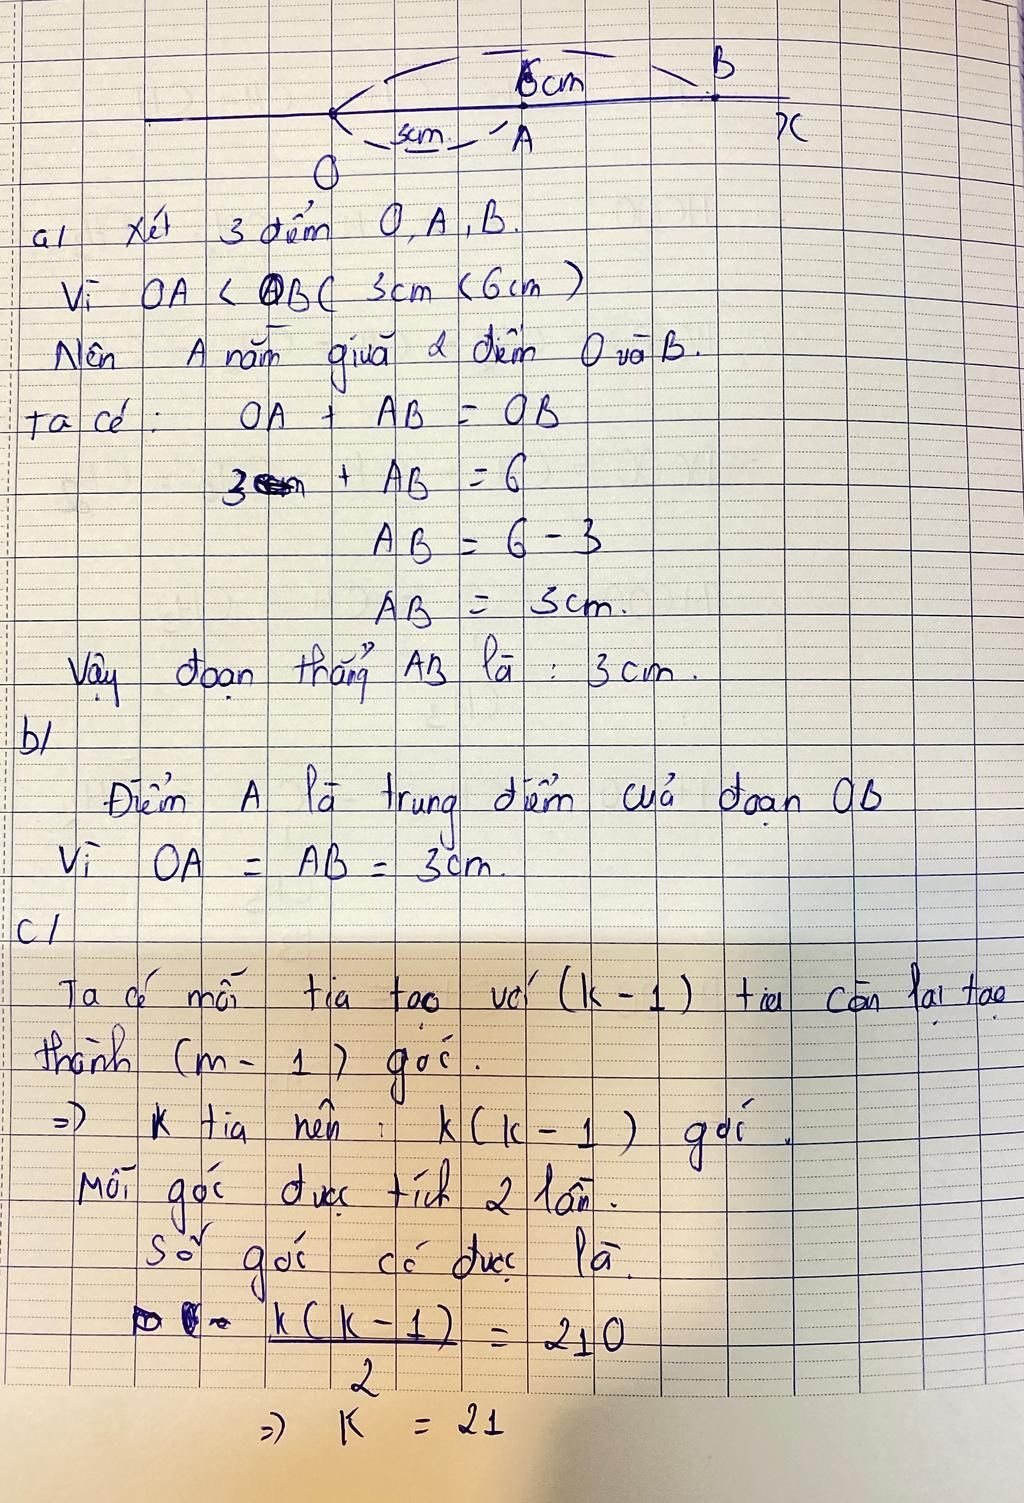 B
6cm
3cm
A
x
O
a/ Xét 3 điểm O, A, B.
Vì OA < OB ( 3cm < 6cm )
Nên A nằm giữa 2 điểm O và B.
Ta có : OA + AB = OB
3 + AB = 6
AB = 6 - 3
AB = 3cm.
Vậy đoạn thẳng AB là : 3cm.
b/
Điểm A là trung điểm cuả đoạn OB
Vì OA = AB = 3cm.
c/
Ta có mỗi tia tạo với (k - 1) tia còn lại tạo
thành (m - 1) góc.
=> K tia nên : k(k - 1) góc.
Mỗi góc được tích 2 lần.
Số góc có được là.
k(k - 1)/2 = 210
=> K = 21